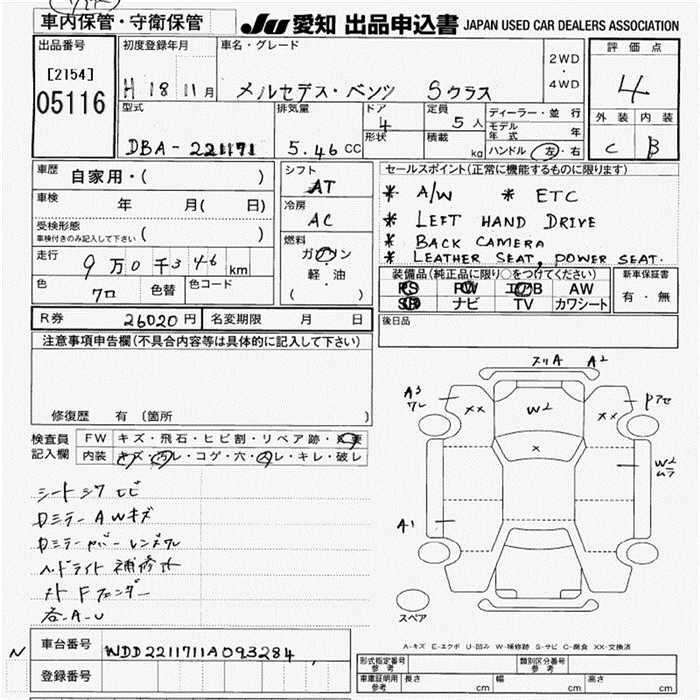 車内保管・守衛保管
JU 愛知 出品申込書 JAPAN USED CAR DEALERS ASSOCIATION
出品番号
[2154]
05116
初度登録年月
H 18 11月
車名・グレード
メルセデス・ベンツ Sクラス
2WD
・
4WD
評価点
4
外装 内装
C B
型式
DBA-221171
排気量
5.46 CC
ドア
4
形状
定員
5人
積載
kg
ディーラー・並行
モデル年式 年
ハンドル 左・右
車歴
自家用・( )
車検
年 月( 日)
受検形態
車検付きのみ記入して下さい ( )
走行
9万0千346km
色
クロ
色替
色コード
シフト
AT
冷房
AC
燃料
ガソリン
軽・油
( )
セールスポイント(正常に機能するものに限ります)
* A/W * ETC
* LEFT HAND DRIVE
* BACK CAMERA
* LEATHER SEAT, POWER SEAT.
装備品(純正品に限り○をつけてください)
PS PW エアB AW
SR ナビ TV カワシート
新車保証書
有・無
後日品
R券 26020円 名変期限 月 日
注意事項申告欄(不具合内容等は具体的に記入して下さい)
修復歴 有 〔箇所 〕
検査員
記入欄
FW キズ・飛石・ヒビ割・リペア跡・交要
内装 キズ・汚レ・コゲ・穴・スレ・キレ・破レ
シートシワ
ミラー AWキズ
ミラーカバー
ヘッドライト 補修
Fフェンダー
各A-U
スリA A2
A3
ワレ
XX
W2
XX
X
W2
ムラ
A1
スペア
A-キズ E-エクボ U-凹み W-補修跡 S-サビ C-腐食 XX-交換済
N
車台番号 WDD2211711A093284
登録番号
形式指定番号
参考
類別区分番号
参考
車庫証明用
参考
長さ cm 幅 cm 高さ cm